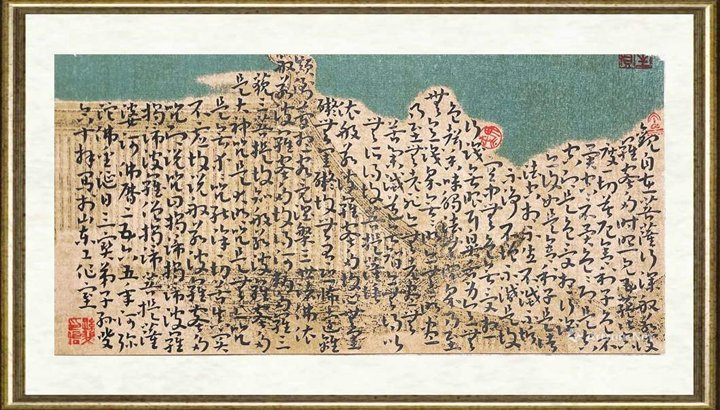 觀自在菩薩行深般若波
羅蜜多時照見五蘊皆空
度一切苦厄舍利子色不
異空空不異色色即是空
空即是色受想行識
亦復如是舍利子是諸
法空相不生不滅不垢
不淨不增不減是故
空中無色無受想
行識無眼耳鼻舌身意無
色聲香味觸法無眼界乃至
無意識界無無明亦無無明盡
乃至無老死亦無老死盡無
苦集滅道無智亦無得以
無所得故菩提薩埵
依般若波羅蜜多故心無罣
礙無罣礙故無有恐怖遠離
顛倒夢想究竟涅槃三世諸佛依
般若波羅蜜多故得阿耨多羅三
藐三菩提故知般若波羅蜜多
是大神咒是大明咒是無上咒
是無等等咒能除一切苦真實
不虛故說般若波羅蜜多
咒即說咒曰揭諦揭諦波羅
揭諦波羅僧揭諦菩提薩
婆訶佛曆二五六五年阿彌
陀佛聖誕日三寶弟子孫
六十拜寫於山東工作室